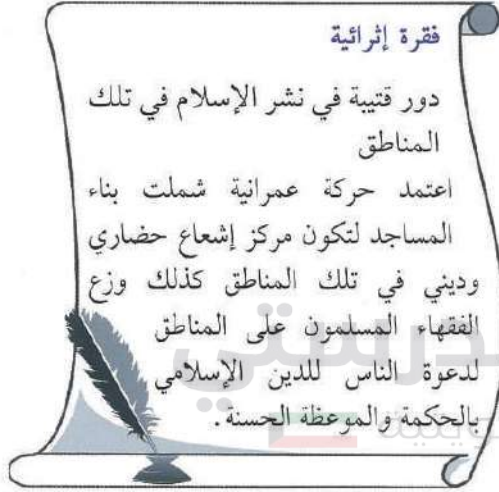 فقرة إثرائية
دور قتيبة في نشر الإسلام في تلك
المناطق
اعتمد حركة عمرانية شملت بناء
المساجد لتكون مركز إشعاع حضاري
وديني في تلك المناطق كذلك وزع
الفقهاء المسلمون على المناطق
لدعوة الناس للدين الإسلامي
بالحكمة والموعظة الحسنة.